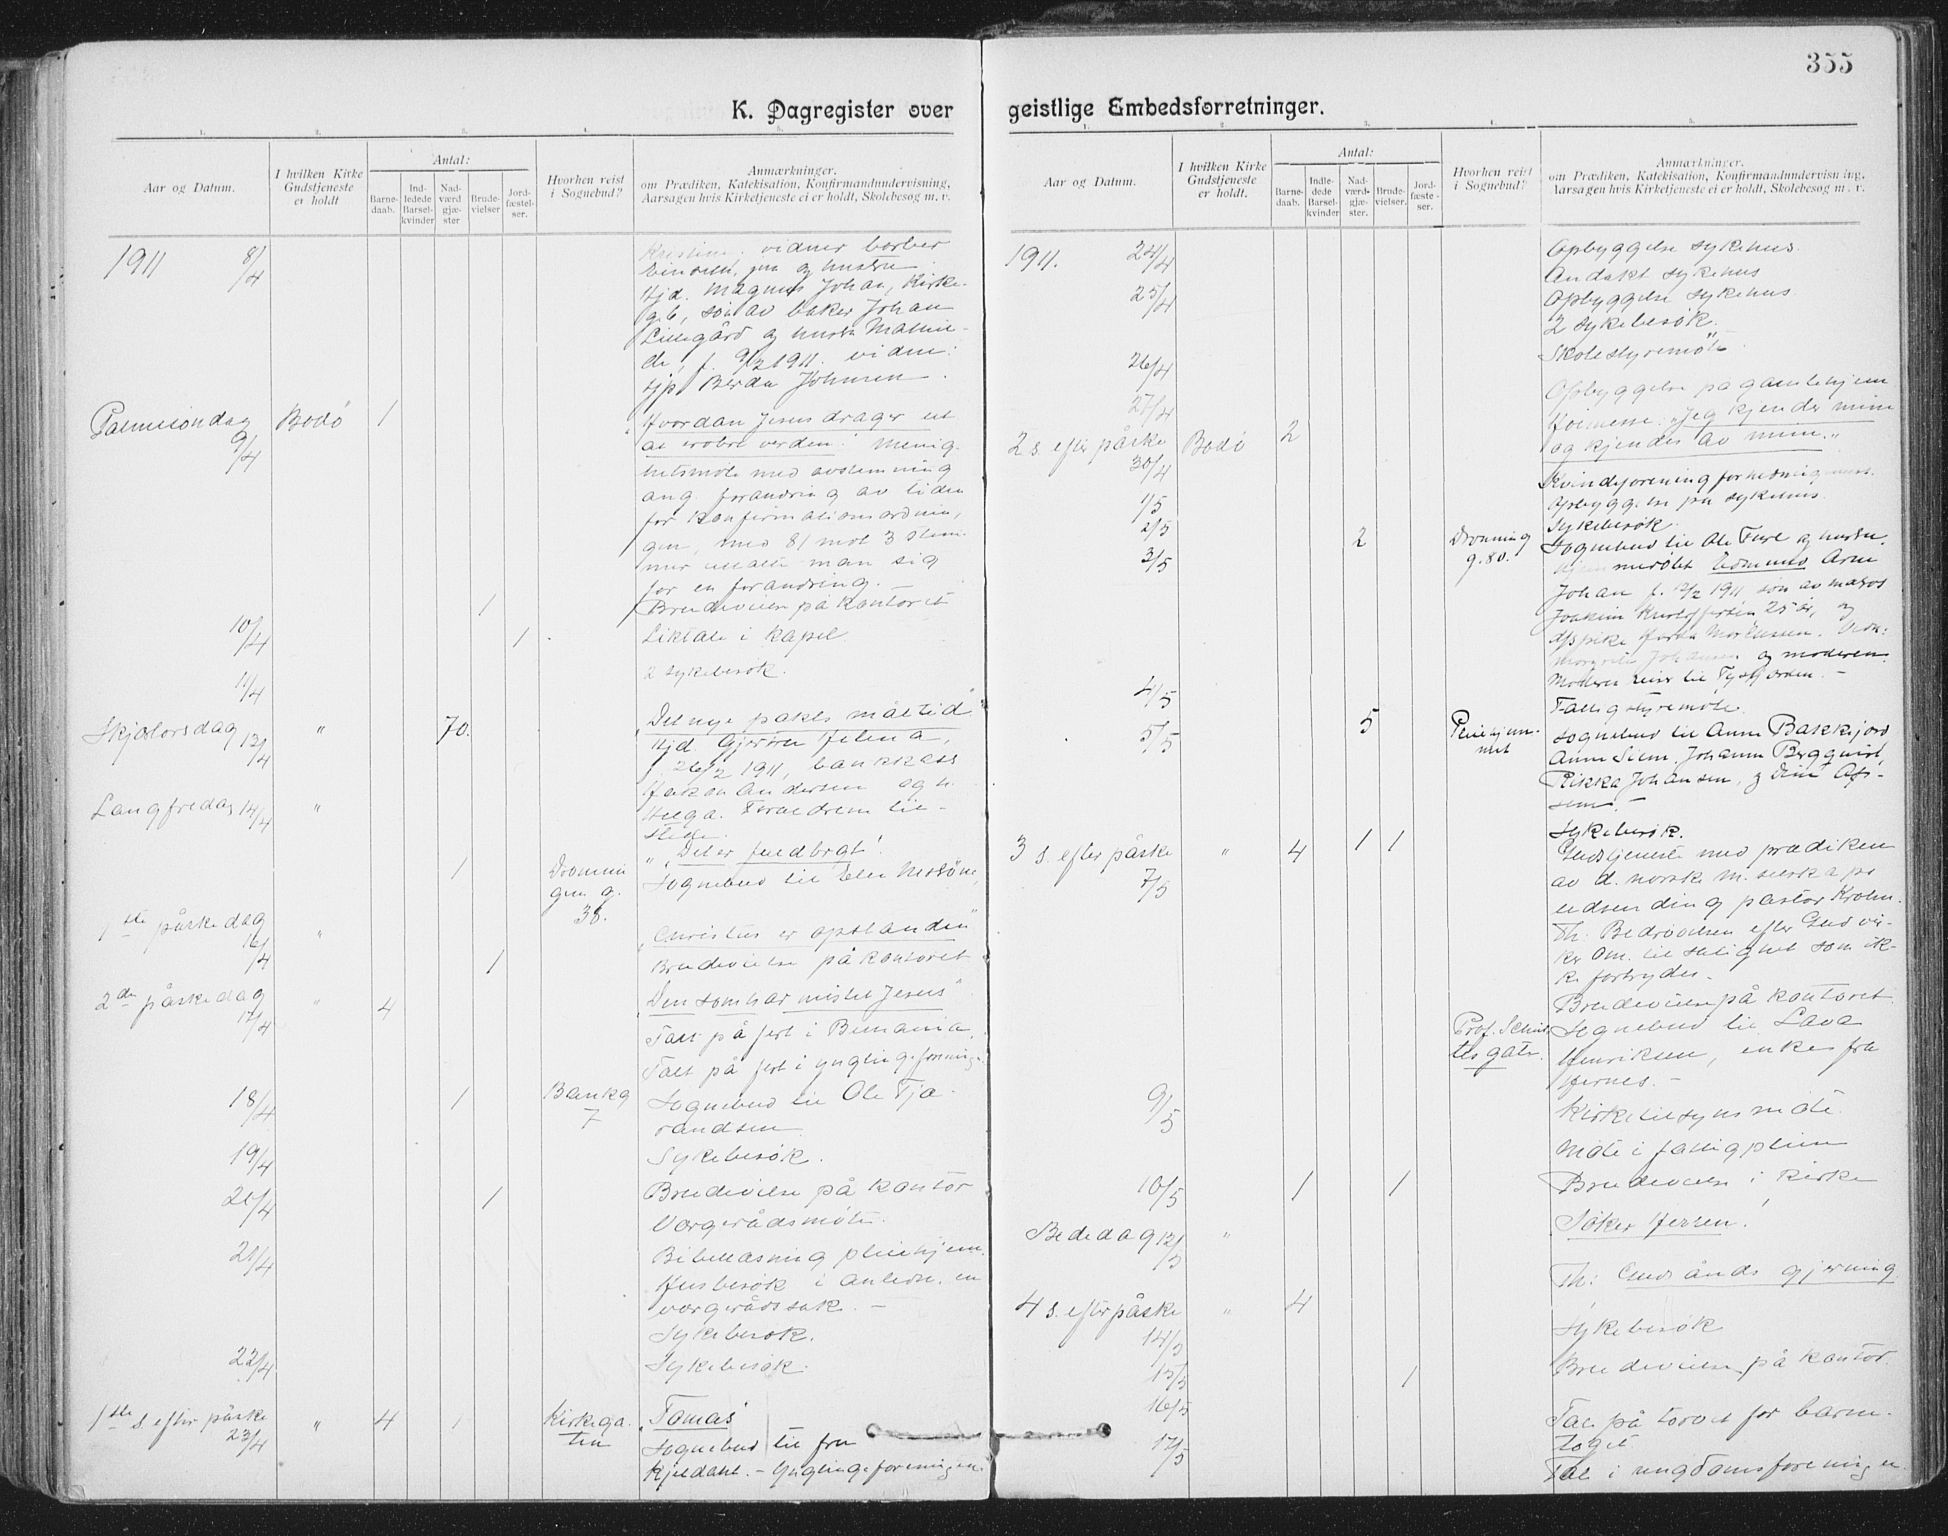 355
K. Dagregister over
1. 2. 3. 4. 5.
Aar og Datum.
I hvilken Kirke Gudstjeneste er holdt
Antal:
Barne-daab.
Ind-ledede Barsel-kvinder
Nad-værd gjæ-ster
Brude-vielser
Jord-fæstel-ser.
Hvorhen reist i Sognebud?
Anmærkninger.
om Prædiken, Katekisation, Konfirmandundervisning,
Aarsagen hvis Kirketjeneste ei er holdt, Skolebesøg m. v.
1911 8/4 vidner barber
og hustru
Hjd. Magnus Johan, Kirke-
g. 6, søn av baker Johan
Lillegård og hustr. Mathil-
de, f. 9/2 1911. vidne:
Hjp Berda Johnsen.
Palmesøndag 9/4 Bodø 1 Hvordan Jesus drager ut
at erobre verden. Menig-
hetsmøte med avstemning
ang. forandring av tiden
for konfirmationsordnin-
gen, med 81 mot 3 stem-
mer uttalte man sig
for en forandring. –
1 Brudevielse på kontoret
10/4 1 Liktale i kapel
11/4 2 sykebesøk.
Skjærtorsdag 13/4 " 70. "Det nye pakts måltid"
Hjd Helena,
f. 26/2 1911, bankkass
Håkon Andersen og h.
Helga. Foreldrene til-
stede.
Langfredag 14/4 " "Det er fuldbragt!"
1 Dronnin
gens g.
38. Sognebud til
1ste påskedag 16/4 " "Christus er opstanden"
1 Brudevielse på kontoret
2den påskedag 17/4 " 4 "Den som har mistet Jesus"
Talt på fest i
Talt på fest i ynglingeforening.
18/4 1 Bankg
7 Sognebud til Ole Tja-
randsen
19/4 Sykebesøk.
20/4 1 Brudevielse på kontor
Vergerådsmøte.
21/4 Bibellæsning pleiehjem.
Husbesøk i anledn. en
vergerådssak. –
Sykebesøk.
22/4 Sykebesøk.
1ste s. efter påske 23/4 " 4 1 Kirkega-
ten "Tomas"
Sognebud til fru
Kjeldahl. – Ynglingeforeningen
geistlige Embedsforretninger.
1. 2. 3. 4. 5.
Aar og Datum.
I hvilken Kirke Gudstjeneste er holdt.
Antal:
Barne-daab.
Indle-dede Barsel-kvinder
Nad-værd gjæ-ster.
Brude-vielser.
Jord-fæstel-ser.
Hvorhen reist i Sognebud?
Anmærkninger.
om Prædiken, Katekisation, Konfirmandundervisning,
Aarsagen hvis Kirketjeneste ei er holdt, Skolebesøg m. v.
1911. 24/4 Opbyggelse sykehus.
Andakt sykehus
25/4 Opbyggelse sykehus.
2 sykebesøk.
26/4 Skolestyremøte
27/4 Opbyggelse på gamlehjem
2 s. efter påske 30/4 Bodø 2 Høimesse: "Jeg kjender mine
og kjendes av mine."
1/5 Kvindeforening for hedningemiss.
Opbyggelse på sykehus.
2/5 Sykebesøk.
3/5 2 Dronning
g. 80. Sognebud til Ole Furl og hustru.
Hjemmedøbt Edmund Arne
Johan f. 12/2 1911 søn av matros
Joakim Kristoffersen 25 år, og
pike Marta Mortensen. Vidn:
Margrete Johansen og moderen.
Moderen reiser til Tysfjorden. –
4/5 Fattigstyremøte.
5/5 5 Pleiehjem-
met Sognebud til Anne Bakkejord
Anne Siem. Johanne Bergquist,
Rikka Johansen, og
Sykebesøk.
3 s. efter påske 7/5 " 4 1 1 Gudstjeneste med prædiken
av d. norske m. selskaps
utsending pastor Krohn.
Th: Bedrøvelsen efter Gud vir-
ker Om. til salighet som ik-
ke fortrydes.
Brudevielse på kontoret
Prof. Schyt-
tes gate. Sognebud til Lava
Henriksen, enke fra
Hernes. –
9/5 Kirketilsynsmøte.
Møte i fattigpleien
10/5 1 1 Brudevielse i kirke
Bededag 12/5 " Søker Herren!
4 s. efter påske 14/5 " 4 Th: Guds ånds gjerning
Sykebesøk
15/5 1 Brudevielse på kontor.
16/5 Tale på torvet for barne-
toget
17/5 Tale i ungdomsforeningen